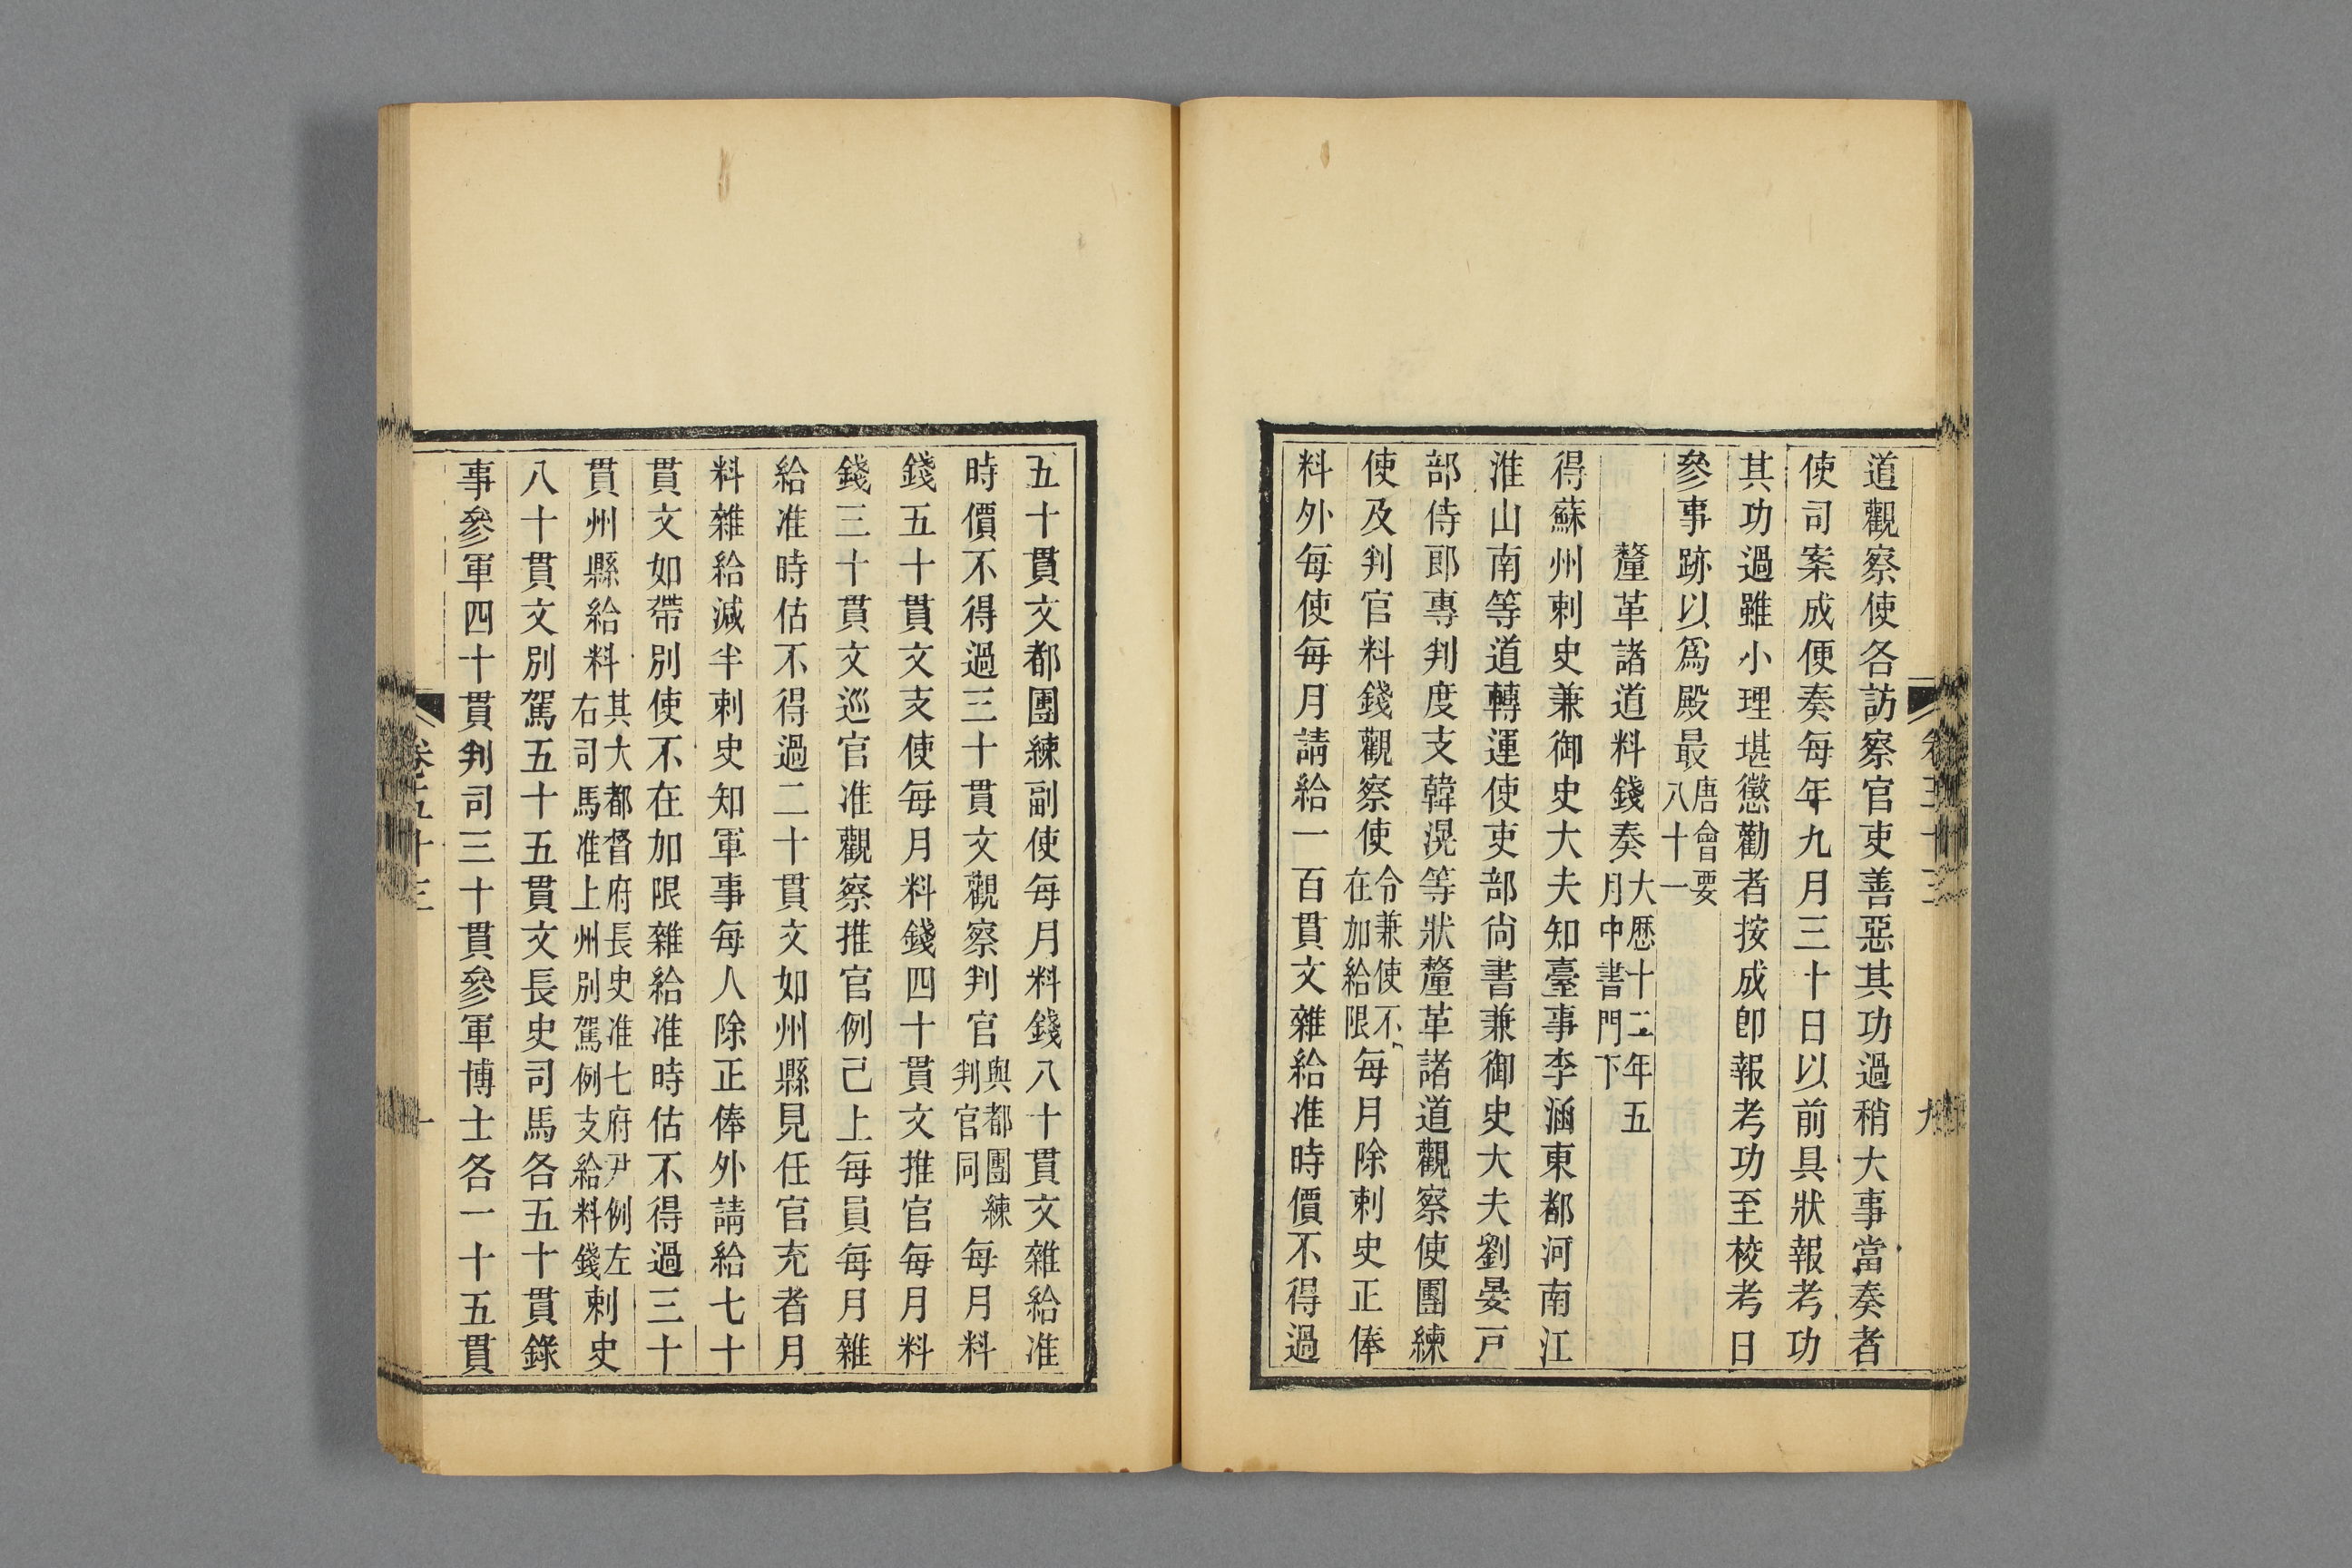 道觀察使各訪察官吏善惡其功過稍大事當奏者
使司案成便奏每年九月三十日以前具狀報考功
其功過雖小理堪懲勸者按成卽報考功至校考日
參事跡以爲殿最唐會要八十一
釐革諸道料錢奏大厯十二年五月中書門下
得蘇州刺史兼御史大夫知臺事李涵東都河南江
淮山南等道轉運使吏部尙書兼御史大夫劉晏戸
部侍郎專判度支韓滉等狀釐革諸道觀察使團練
使及判官料錢觀察使令兼使不在加給限每月除刺史正俸
料外每使每月請給一百貫文雜給准時價不得過
五十貫文都團練副使每月料錢八十貫文雜給准
時價不得過三十貫文觀察判官與都團練判官同每月料
錢五十貫文支使每月料錢四十貫文推官每月料
錢三十貫文巡官准觀察推官例己上每員每月雜
給准時估不得過二十貫文如州縣見任官充者月
料雜給減半刺史知軍事每人除正俸外請給七十
貫文如帶別使不在加限雜給准時估不得過三十
貫州縣給料其大都督府長史准七府尹例左右司馬准上州別駕例支給料錢刺史
八十貫文別駕五十五貫文長史司馬各五十貫錄
事參軍四十貫判司三十貫參軍博士各一十五貫
卷五十三